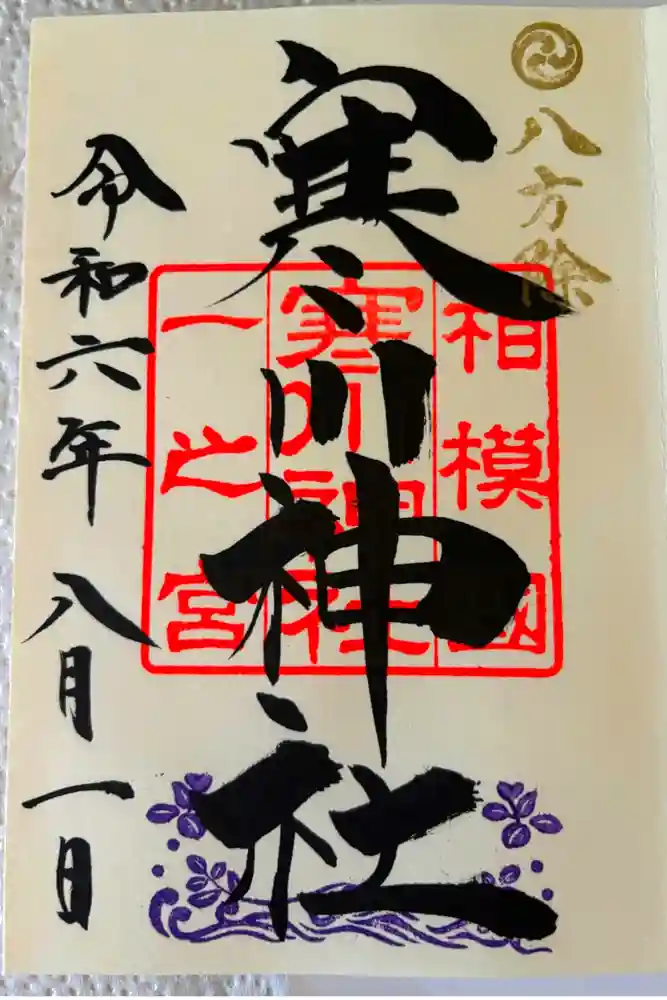 八方除
相模國
寒川神社
一之宮
寒川神社
令和六年八月一日